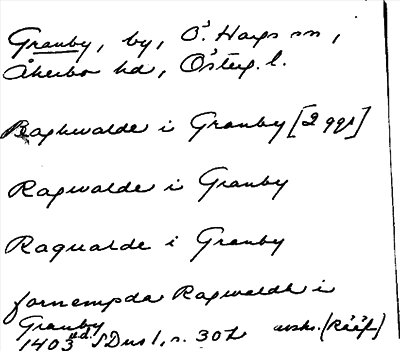 Granby, by, Ö. Hargs sn,
Åkerbo hd, Östergl.
Raghwalde i Granby [2 ggr]
Ragwalde i Granby
Ragualde i Granby
fornempda Ragwaldh i
Granby
1403 u.d. SDns 1, s. 307 avskr. (Rääf)